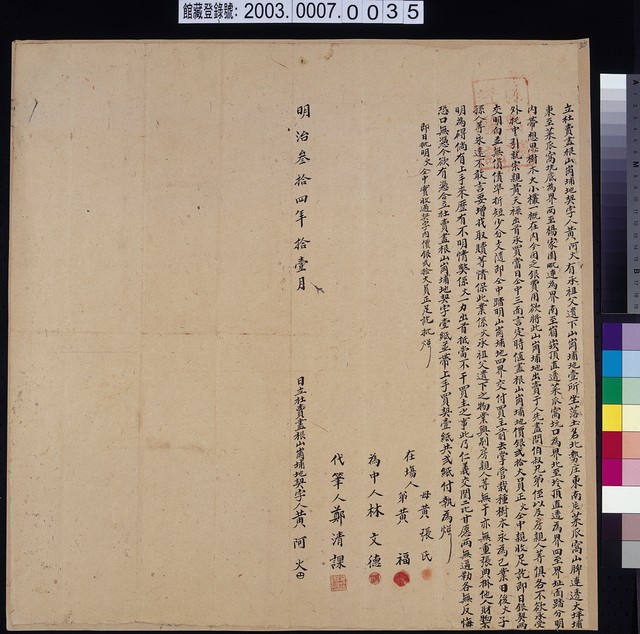 館藏登錄號: 2003.0007.0035
立杜賣盡根山崗埔地契字人黃阿火有承祖父遺下山崗埔地壹所坐落土名北勢庄東南片菜瓜窩山脾連透大坪埔
東至菜瓜窩坑底為界西至楊家園毗連為界南至崩崁頂直透菜瓜窩坑口為界北至崁頂直透為界四至界址面踏分明
內帶想思樹木大小欉一概在內今因乏銀費用欲將此山崗埔地出賣于人先盡問伯叔兄弟侄以及房親人等俱各不欲承受
外托中引就宗親黃天祿出首承買當日仝中三面言定時值盡根山崗埔地價銀貳拾大員正火仝中親收足訖即日銀契兩
交明白並無債債準折短少分文隨即仝中踏明山崗埔地四界交付買主前去掌管栽種樹木永為己業日後火子
孫人等永遠不敢言妄增找取贖等情保此業係火承祖父遺下之物業與別房親人等無干亦無重張典掛他人財物
明為碍倘有上手來歷有不明情獘係火一力出首抵當不干買主之事此乃仁義交関二比甘愿兩無逼勒各無反悔
恐口無憑今欲有憑合立杜賣盡根山崗埔地契字壹紙並帶上手買契壹紙共貳紙付執為炤
即日批明火仝中實收過契字內價銀貳拾大員正足訖批炤
母黃張氏
在場人
弟黃福
為中人林文德
代筆人鄭清課
明治叁拾四年拾壹月
日立杜賣盡根山崗埔地契字人黃阿火